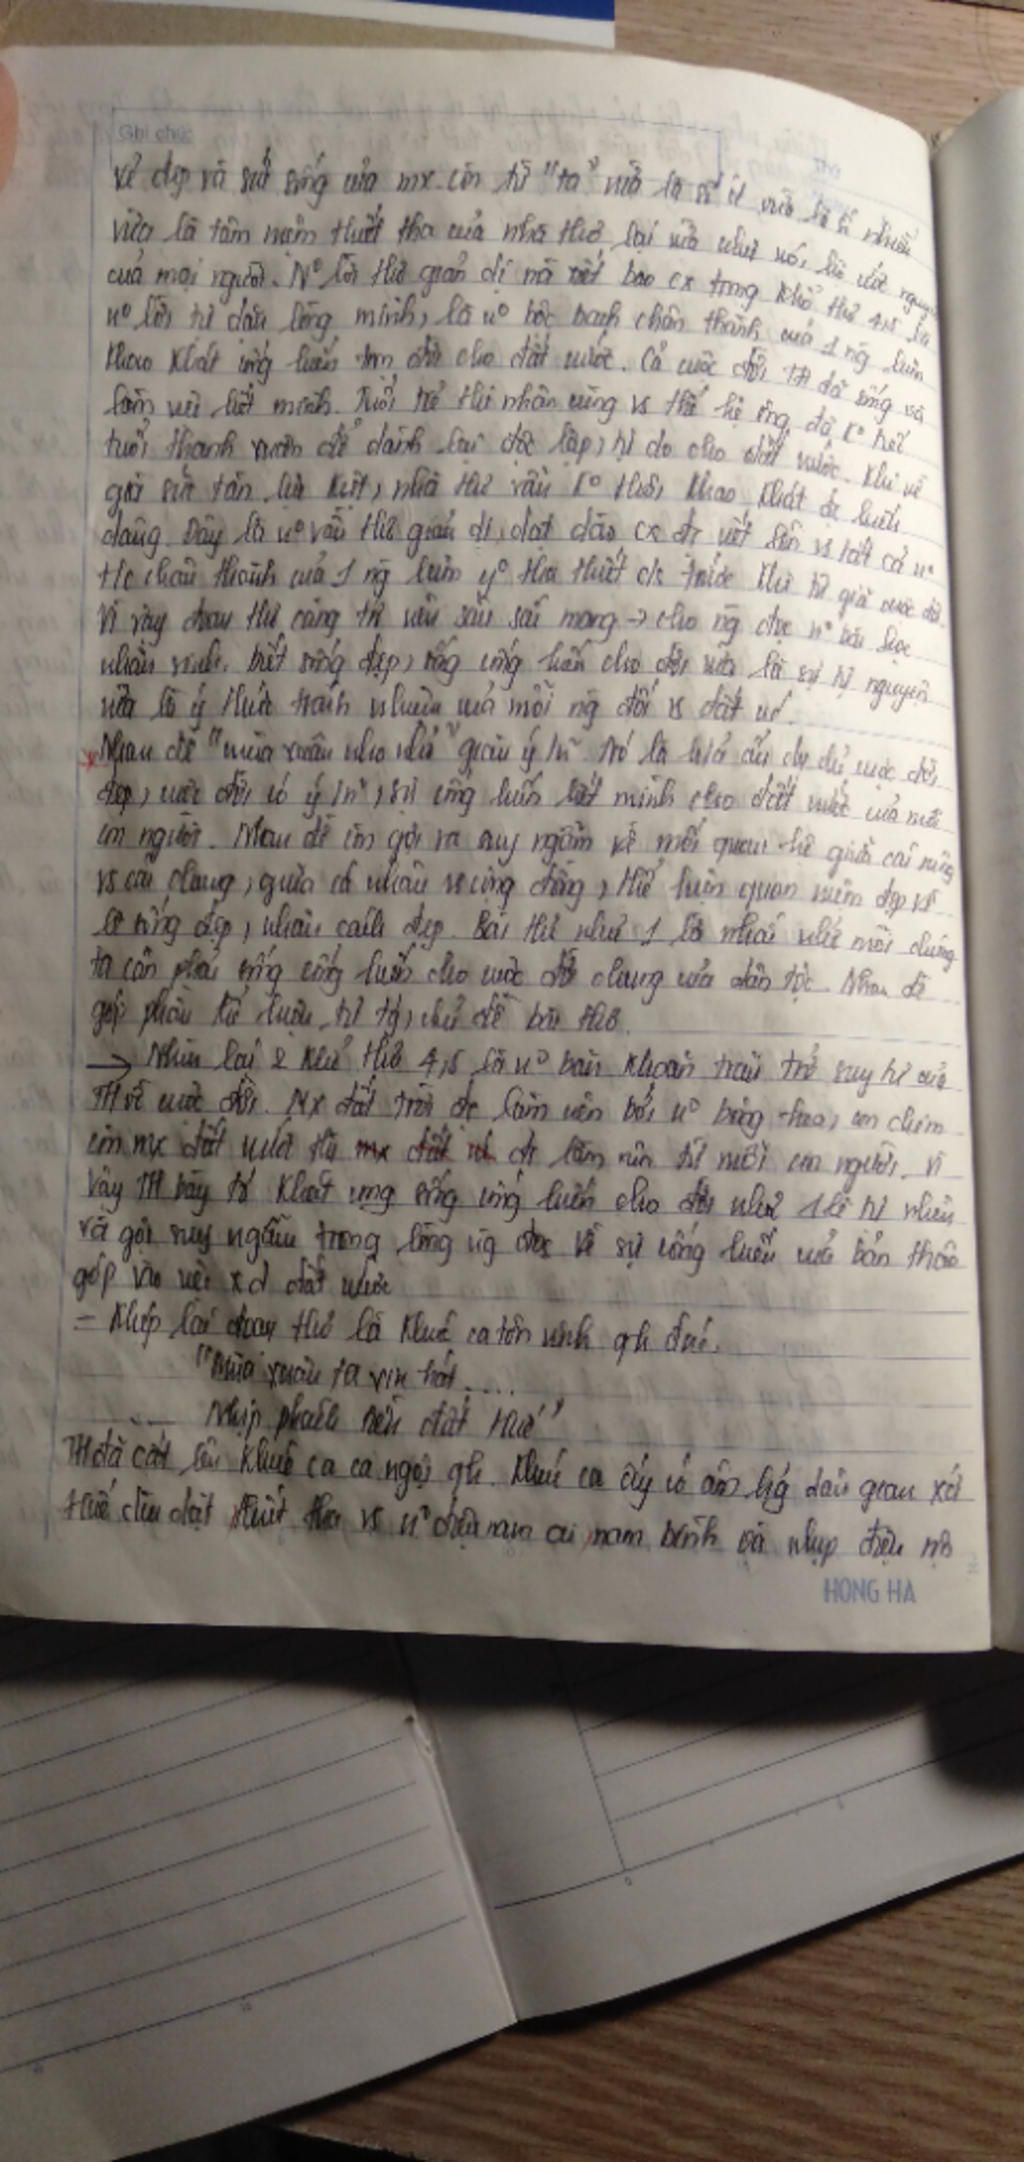 Ghi chú
Vẻ đẹp và sức sống của mx. còn từ "ta" vừa là số ít vừa là số nhiều
vừa là tâm niệm thiết tha của nhà thơ lại vừa như nói lên ước nguyện
của mọi người. N° lời thơ giản dị mà biết bao cx trong khổ thơ 4,5 là
n° lời từ đáy lòng mình, là n° bộc bạch chân thành của 1 ng luôn
khao khát cống hiến cho đất nước. Cả cuộc đời TH đã sống và
làm việc hết mình. Tuổi trẻ thi nhân cùng vs thế hệ ông đã
tuổi thanh xuân để dành lại độc lập, tự do cho đất nước. Khi về
già sức tàn lực kiệt, nhà thơ vẫn k° thôi khao khát đc hiến
dâng. Đây là n° vần thơ giản dị, dạt dào cx đc viết lên vs tất cả n°
chân thành của 1 ng luôn y° tha thiết trước khi từ giã cuộc đời.
Vì vậy đoạn thơ càng trở nên sâu sắc mang → cho ng đọc n° bài học
nhân sinh. biết sống đẹp, sống cống hiến cho đời vừa là sự tự nguyện
vừa là ý thức trách nhiệm của mỗi ng đối vs đất nc.
* Nhan đề "mùa xuân nho nhỏ" giàu ý n°. Nó là cuộc đời
đẹp, cuộc đời có ý n°, sự cống hiến hết mình cho đất nước của mỗi
con người. Nhan đề còn gợi ra suy ngẫm về mối quan hệ giữa cái riêng
vs cái chung, giữa cá nhân vs cộng đồng, thể hiện quan niệm đẹp về
lẽ sống đẹp, nhân cách đẹp. Bài thơ như 1 lời nhắc nhở mỗi chúng
ta cần phải sống cống hiến cho cuộc đời chung của dân tộc. Nhan đề
góp phần thể hiện tư tg, chủ đề bài thơ.
→ Nhìn lại 2 khổ thơ 4,5 là n° băn khoăn trăn trở suy tư của
TH về cuộc đời. Mx đất trời đc làm nên bởi n° bông hoa, con chim
còn mx đất nước thì đc làm nên từ mỗi con người. Vì
vậy TH bày tỏ khát vọng sống cống hiến cho đời như 1 lẽ tự nhiên
và gợi suy ngẫm trong lòng ng đọc về sự cống hiến của bản thân
góp vào việc xd đất nước
- Khép lại đoạn thơ là khúc ca tôn vinh qh đnc.
"Mùa xuân ta xin hát....
.... Nhịp phách tiền đất Huế"
TH đã cất lên khúc ca ca ngợi qh. Khúc ca ấy có âm hg dân gian xứ
Huế dìu dặt thiết tha vs n° điệu nam ai, nam bình và nhịp điệu
HONG HA